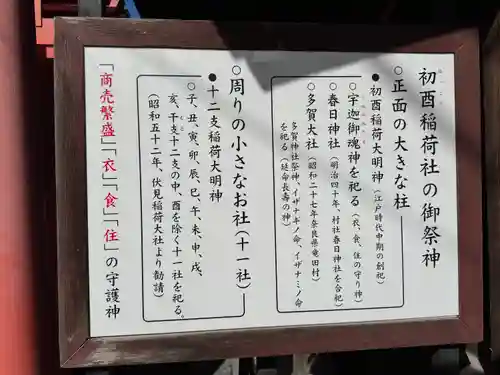 初酉稲荷社の御祭神
○正面の大きな柱
●初酉稲荷大明神（江戸時代中期の創祀）
○宇迦御魂神を祀る（衣、食、住の守り神）
○春日神社（明治四十年、村社春日神社を合祀）
○多賀大社（昭和二十七年奈良県竜田村）
多賀神社祭神、イザナギノ命、イザナミノ命
を祀る（延命長壽の神）
○周りの小さなお社（十一社）
●十二支稲荷大明神
○子、丑、寅、卯、辰、巳、午、未、申、戌、
亥、干支十二支の中、酉を除く十一社を祀る。
（昭和五十二年、伏見稲荷大社より勧請）
「商売繁盛」「衣」「食」「住」の守護神